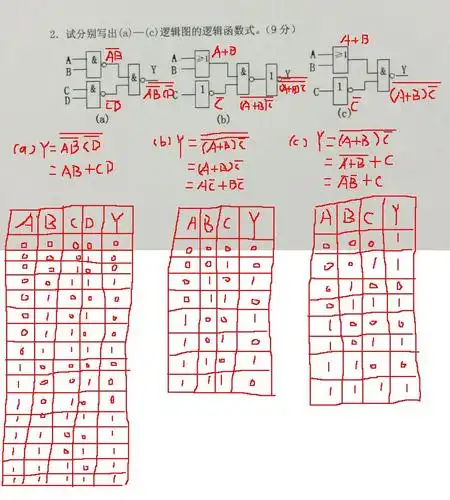 2. 试分别写出(a)—(c)逻辑图的逻辑函数式。(9 分)
A B & A̅B̅
C D & C̅D̅
& Y
(a)
A B ≥1 A+B
C 1 C̅
& (A+B)C̅
1 Y
(b)
A B ≥1 A+B
C 1 C̅
& Y (A+B)C̅
(c)
(a) Y = A̅B̅ C̅D̅
= AB + CD
(b) Y = (A+B)C̅
= (A+B)C̅
= AC̅ + BC̅
(c) Y = (A+B)C̅
= A+B + C
= A̅B̅ + C
A B C D Y
0 0 0 0 0
0 0 0 1 0
0 0 1 0 0
0 0 1 1 1
0 1 0 0 0
0 1 0 1 0
0 1 1 0 0
0 1 1 1 1
1 0 0 0 0
1 0 0 1 0
1 0 1 0 0
1 0 1 1 1
1 1 0 0 1
1 1 0 1 1
1 1 1 0 1
1 1 1 1 1
A B C Y
0 0 0 0
0 0 1 0
0 1 0 1
0 1 1 0
1 0 0 1
1 0 1 0
1 1 0 1
1 1 1 0
A B C Y
0 0 0 1
0 0 1 1
0 1 0 0
0 1 1 1
1 0 0 0
1 0 1 1
1 1 0 0
1 1 1 1